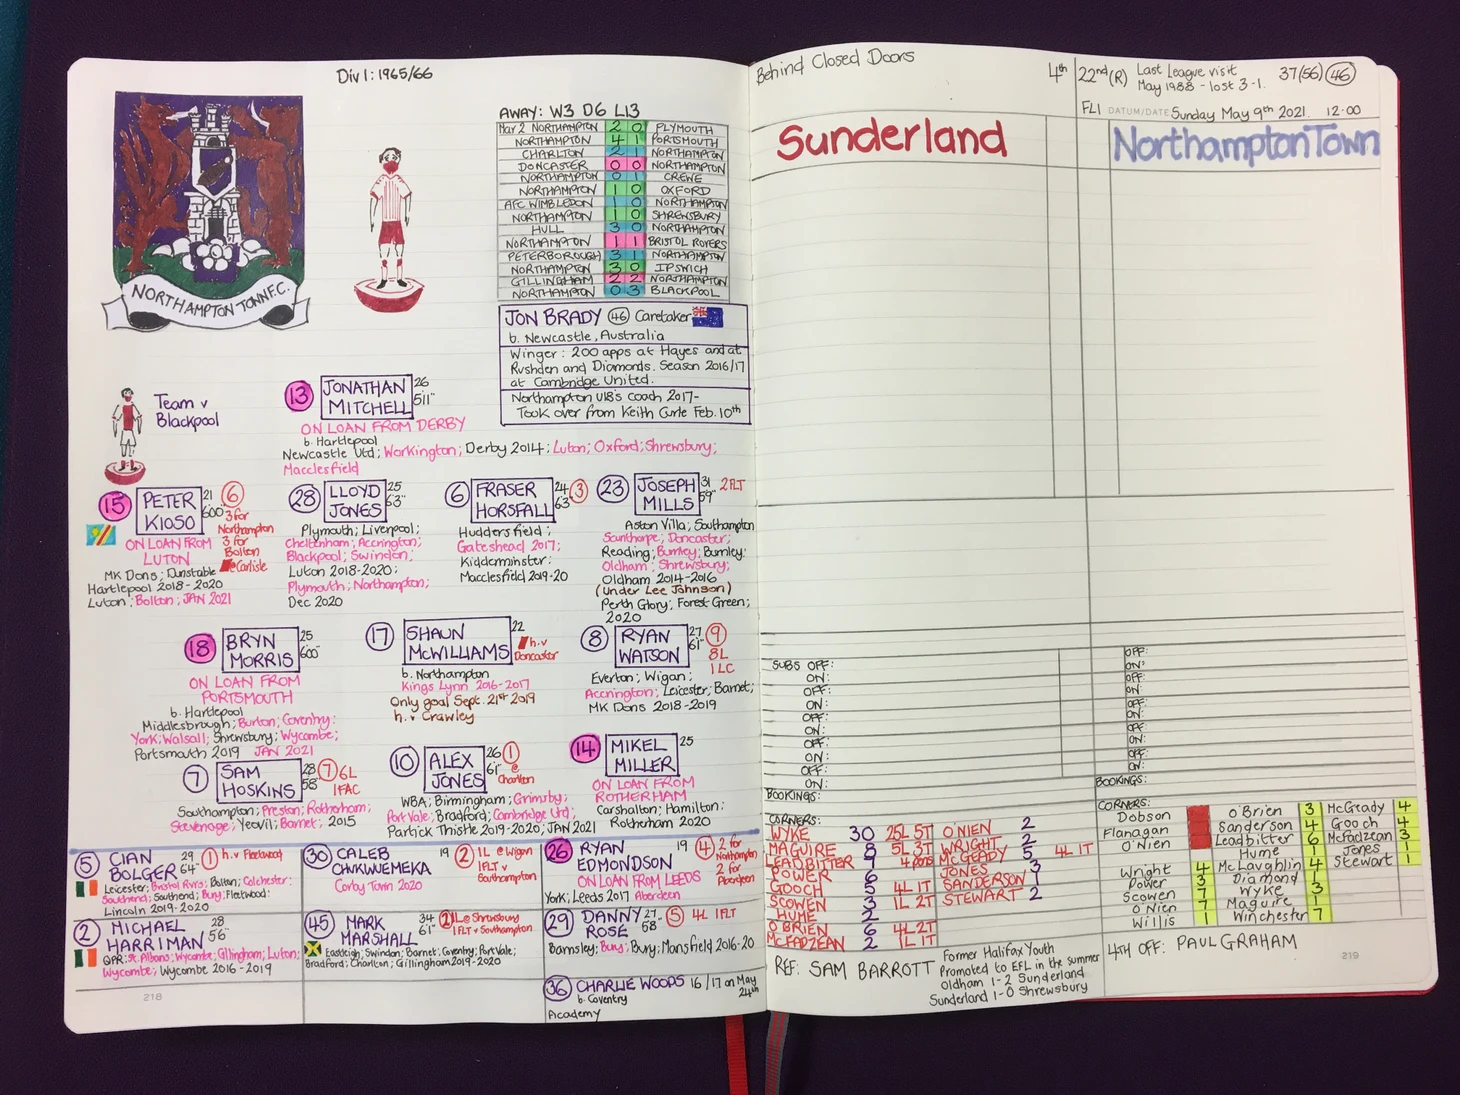 Div 1: 1965/66
NORTHAMPTON TOWN F.C.
AWAY: W3 D6 L13
Mar 2 NORTHAMPTON 2 0 PLYMOUTH
NORTHAMPTON 4 1 PORTSMOUTH
CHARLTON 2 1 NORTHAMPTON
DONCASTER 0 0 NORTHAMPTON
NORTHAMPTON 0 1 CREWE
NORTHAMPTON 1 0 OXFORD
AFC WIMBLEDON 1 0 NORTHAMPTON
NORTHAMPTON 1 0 SHREWSBURY
HULL 3 0 NORTHAMPTON
NORTHAMPTON 1 1 BRISTOL ROVERS
PETERBOROUGH 3 1 NORTHAMPTON
NORTHAMPTON 3 0 IPSWICH
GILLINGHAM 2 2 NORTHAMPTON
NORTHAMPTON 0 3 BLACKPOOL
JON BRADY 46 Caretaker
b. Newcastle, Australia
Winger: 200 apps at Hayes and at
Rushden and Diamonds. Season 2016/17
at Cambridge United.
Northampton U18's coach 2017-
Took over from Keith Curle Feb. 10th
Team v
Blackpool
13 JONATHAN MITCHELL 26 5'11"
ON LOAN FROM DERBY
b. Hartlepool
Newcastle Utd; Workington; Derby 2014; Luton; Oxford; Shrewsbury;
Macclesfield
15 PETER KIOSO 21 600" 6
3 for
Northampton
3 for
Bolton
@Carlisle
ON LOAN FROM
LUTON
MK Dons; Dunstable
Hartlepool 2018-2020
Luton; Bolton; JAN 2021
28 LLOYD JONES 25 63"
Plymouth; Liverpool;
Cheltenham; Accrington;
Blackpool; Swindon;
Luton 2018-2020;
Plymouth; Northampton;
Dec 2020
6 FRASER HORSFALL 24 63" 3
Huddersfield;
Gateshead 2017;
Kidderminster:
Macclesfield 2019-20
23 JOSEPH MILLS 31 59" 2FLT
Aston Villa; Southampton
Scunthorpe; Doncaster;
Reading; Burnley; Burnley:
Oldham; Shrewsbury;
Oldham 2014-2016
(Under Lee Johnson)
Perth Glory; Forest Green;
2020
18 BRYN MORRIS 25 600"
ON LOAN FROM
PORTSMOUTH
b. Hartlepool
Middlesbrough; Burton; Coventry:
York; Walsall; Shrewsbury; Wycombe;
Portsmouth 2019 JAN 2021
17 SHAUN McWILLIAMS 22
h.v
Doncaster
b. Northampton
Kings Lynn 2016-2017
Only goal Sept. 21st 2019
h. v Crawley
8 RYAN WATSON 27 61" 9
8L
1LC
Everton; Wigan;
Accrington; Leicester; Barnet;
MK Dons 2018-2019
7 SAM HOSKINS 28 58" 7 6L
1FAC
Southampton; Preston; Rotherham;
Stevenage; Yeovil; Barnet; 2015
10 ALEX JONES 26 61" 1
@
Charlton
WBA; Birmingham; Grimsby;
Port Vale; Bradford; Cambridge Utd;
Partick Thistle 2019-2020; JAN 2021
14 MIKEL MILLER 25
ON LOAN FROM
ROTHERHAM
Carshalton; Hamilton:
Rotherham 2020
5 CIAN BOLGER 29 64" 1 h.v Fleetwood
Leicester; Bristol Rvrs; Bolton; Colchester:
Southend; Southend; Bury; Fleetwood:
Lincoln 2019-2020
30 CALEB CHUKWUEMEKA 19 2 1L @ Wigan
1FLT v
Southampton
Corby Town 2020
26 RYAN EDMONDSON 19 4 2 for
Northampton
2 for
Aberdeen
ON LOAN FROM LEEDS
York; Leeds 2017 Aberdeen
2 MICHAEL HARRIMAN 28 56"
QPR; St. Albans; Wycombe; Gillingham; Luton;
Wycombe; Wycombe 2016-2019
45 MARK MARSHALL 34 61" 2 1L@Shrewsbury
1FLT v Southampton
Eastleigh; Swindon; Barnet; Coventry; Port Vale;
Bradford; Charlton; Gillingham 2019-2020
29 DANNY ROSE 27 58" 5 4L 1FLT
Barnsley; Bury; Bury; Mansfield 2016-20
36 CHARLIE WOODS 16/17 on May
24th
b. Coventry
Academy
218
Behind Closed Doors
4th
22nd (R) Last League visit 37(56) 46
May 1988 - lost 3-1.
FL1 DATUM/DATE Sunday May 9th 2021. 12:00
Sunderland
Northampton Town
SUBS OFF:
ON:
OFF:
ON:
OFF:
ON:
OFF:
ON:
OFF:
ON:
BOOKINGS:
CORNERS:
OFF:
ON:
OFF:
ON:
OFF:
ON:
OFF:
ON:
OFF:
ON:
BOOKINGS:
CORNERS:
WYKE 30 25L 5T
MAGUIRE 8 5L 3T
LEADBITTER 9 4 pens
POWER 6
GOOCH 5 4L 1T
SCOWEN 3 1L 2T
HUME 2
O'BRIEN 6 4L 2T
McFADZEAN 2 1L 1T
O'NIEN 2
WRIGHT 2
McGEADY 5 4L 1T
JONES 3
SANDERSON
STEWART 2
Dobson
Flanagan
O'Nien
Wright 4
Power 3
Scowen 7
O'Nien 7
Willis 1
O'Brien 3
Sanderson 4
Leadbitter 6
Hume 1
McLaughlin 4
Diamond 1
Wyke 3
Maguire 1
Winchester 7
McGeady 4
Gooch 4
McFadzean 3
Jones 1
Stewart 1
REF: SAM BARROTT
Former Halifax Youth
Promoted to EFL in the summer
Oldham 1-2 Sunderland
Sunderland 1-0 Shrewsbury
4TH OFF: PAUL GRAHAM
219